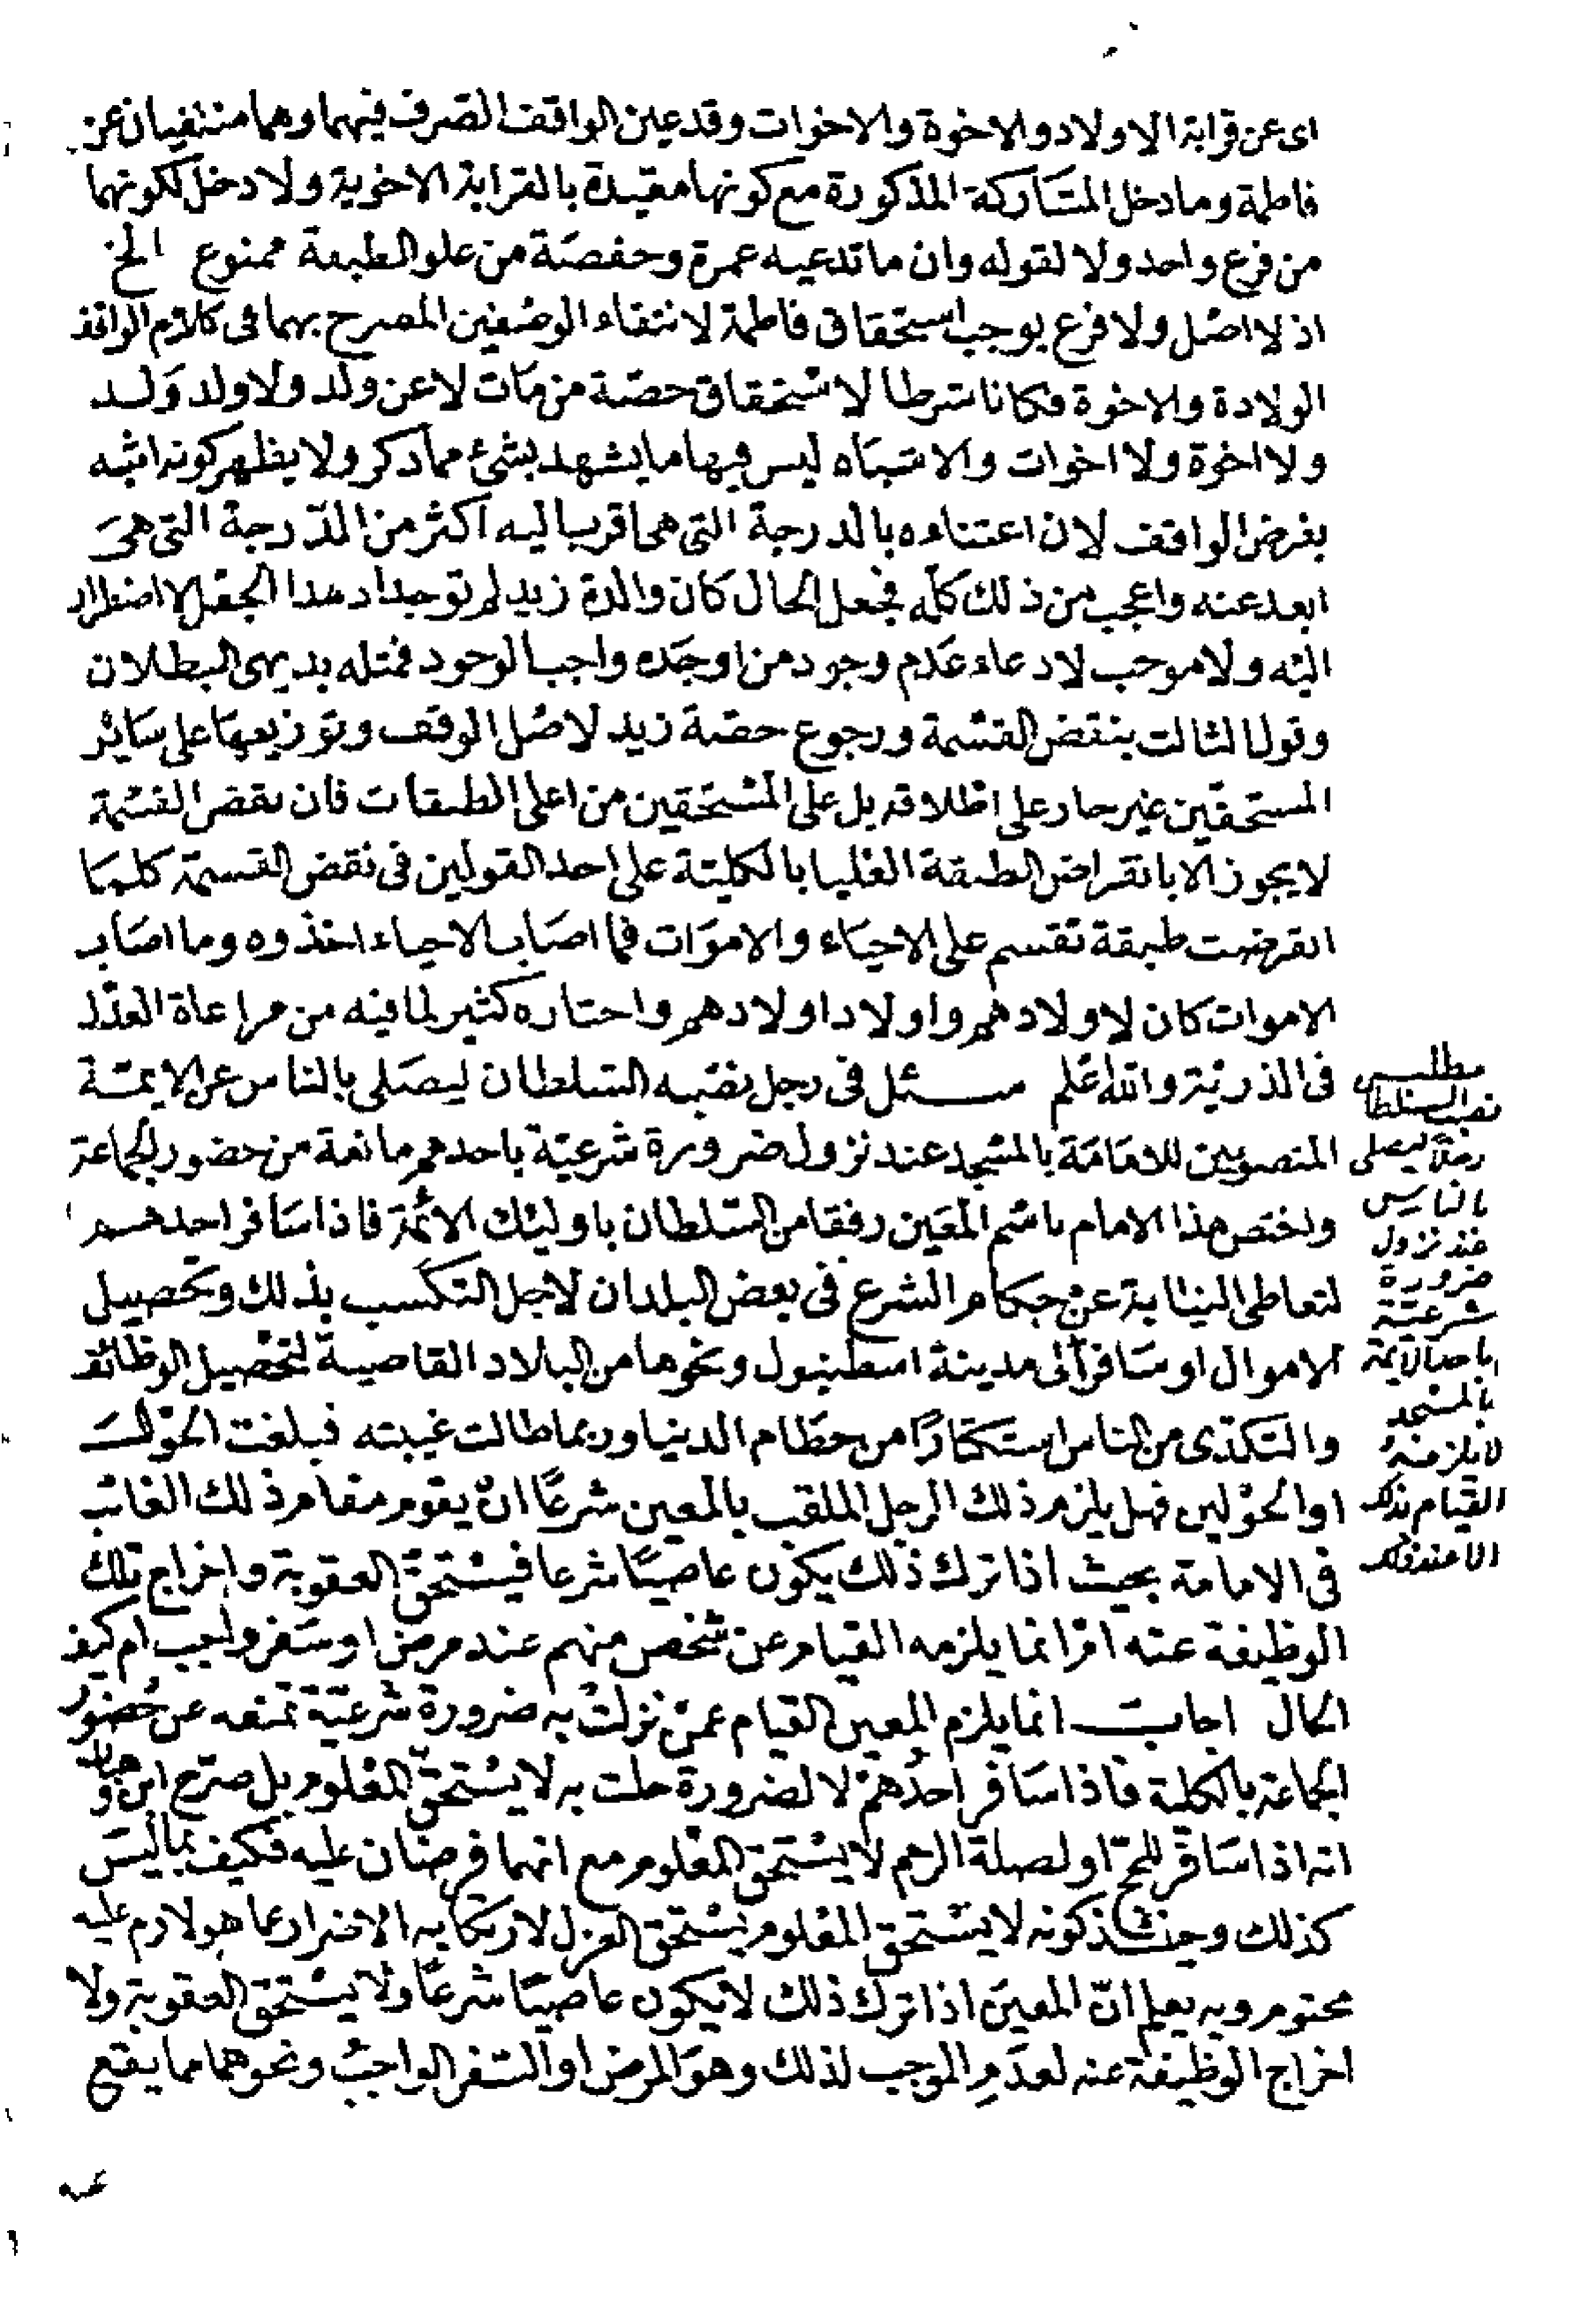 اى عن قرابة الاولاد والاخوة والاخوات وقد عين الواقف الصرف فيهما وهما منتفيان عن
فاطمة وما دخل المشاركة المذكورة مع كونها مقيدة بالقرابة الاخوية ولا دخل لكونهما
من فرع واحد ولا لقوله وان ما تدعيه عمرة وحفصة من علو الطبقة ممنوع الخ
اذ لا اصل ولا فرع يوجب استحقاق فاطمة لانتفاء الوصفين المصرح بهما فى كلام الواقف
الولادة والاخوة فكانا شرطا لاستحقاق حصة من مات لا عن ولد ولا ولد ولد
ولا اخوة ولا اخوات والاشباه ليس فيها ما يشهد بشئ مما ذكر ولا يظهر كونه اشبه
بغرض الواقف لان اعتناءه بالدرجة التى هى اقرب اليه اكثر من الدرجة التى هى
ابعد عنه واعجب من ذلك كله جعل الحال كان والدة زيد لم توجد اذ هذا الجعل لا اضطرار
اليه ولا موجب لادعاء عدم وجود من اوجده واجب الوجود فمثله بديهى البطلان
وقول الثالث بنقض القسمة ورجوع حصة زيد لاصل الوقف وتوزيعها على سائر
المستحقين غير جار على اطلاقه بل على المستحقين من اعلى الطبقات فان نقض القسمة
لا يجوز الا بانقراض الطبقة العليا بالكلية على احد القولين فى نقض القسمة كلما
انقرضت طبقة تقسم على الاحياء والاموات فما اصاب الاحياء اخذوه وما اصاب
الاموات كان لاولادهم واولاد اولادهم واختاره كثير لما فيه من مراعاة العدل
فى الذرية والله اعلم سئل فى رجل نصبه السلطان ليصلى بالناس عن الايمة
المنصوبين للامامة بالمسجد عند نزول ضرورة شرعية باحدهم مانعة من حضور الجماعة
واختص هذا الامام باسم المعين رفقا من السلطان باوليئك الائمة فاذا سافر احدهم
لتعاطى النيابة عن حكام الشرع فى بعض البلدان لاجل التكسب بذلك وتحصيل
الاموال او سافر الى مدينة اسطنبول ونحوها من البلاد القاصية لتحصيل الوظائف
والتكدى من الناس استكثارًا من حطام الدنيا وربما طالت غيبته فبلغت الحول
او الحولين فهل يلزم ذلك الرجل الملقب بالمعين شرعًا ان يقوم مقام ذلك الغائب
فى الامامة بحيث اذا ترك ذلك يكون عاصيًا شرعا فيستحق العقوبة واخراج تلك
الوظيفة عنه ام انما يلزمه القيام عن شخص منهم عند مرض او سفر واجب ام كيف
الحال اجاب انما يلزم المعين القيام عمن نزلت به ضرورة شرعية تمنعه عن حضور
الجماعة بالكلية فاذا سافر احدهم لا لضرورة حلت به لا يستحق المعلوم بل صرح ابن وهبان
انه اذا سافر للحج او لصلة الرحم لا يستحق المعلوم مع انهما فرضان عليه فكيف بما ليس
كذلك وحينئذ كونه لا يستحق المعلوم يستحق العزل لارتكابه الاضرار عما هو لازم عليه
محتوم وبه يعلم انّ المعين اذا ترك ذلك لا يكون عاصيًا شرعًا ولا يستحق العقوبة ولا
اخراج الوظيفة عنه لعدم الموجب لذلك وهو المرض او السفر الواجب ونحوهما مما يقع
مطلب
نصب السلطان
رجلا ليصلى
بالناس
عند نزول
ضرورة
شرعية
باحد الايمة
بالمسجد
لا يلزمه
القيام بذلك
الا عند ذلك